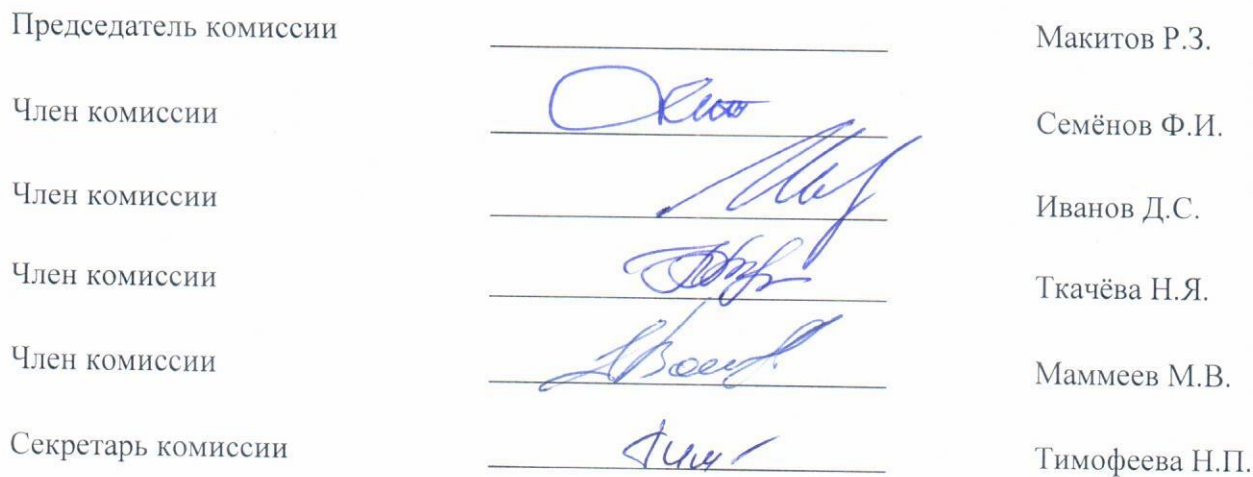 Председатель комиссии Макитов Р.З.
Член комиссии Семёнов Ф.И.
Член комиссии Иванов Д.С.
Член комиссии Ткачёва Н.Я.
Член комиссии Маммеев М.В.
Секретарь комиссии Тимофеева Н.П.